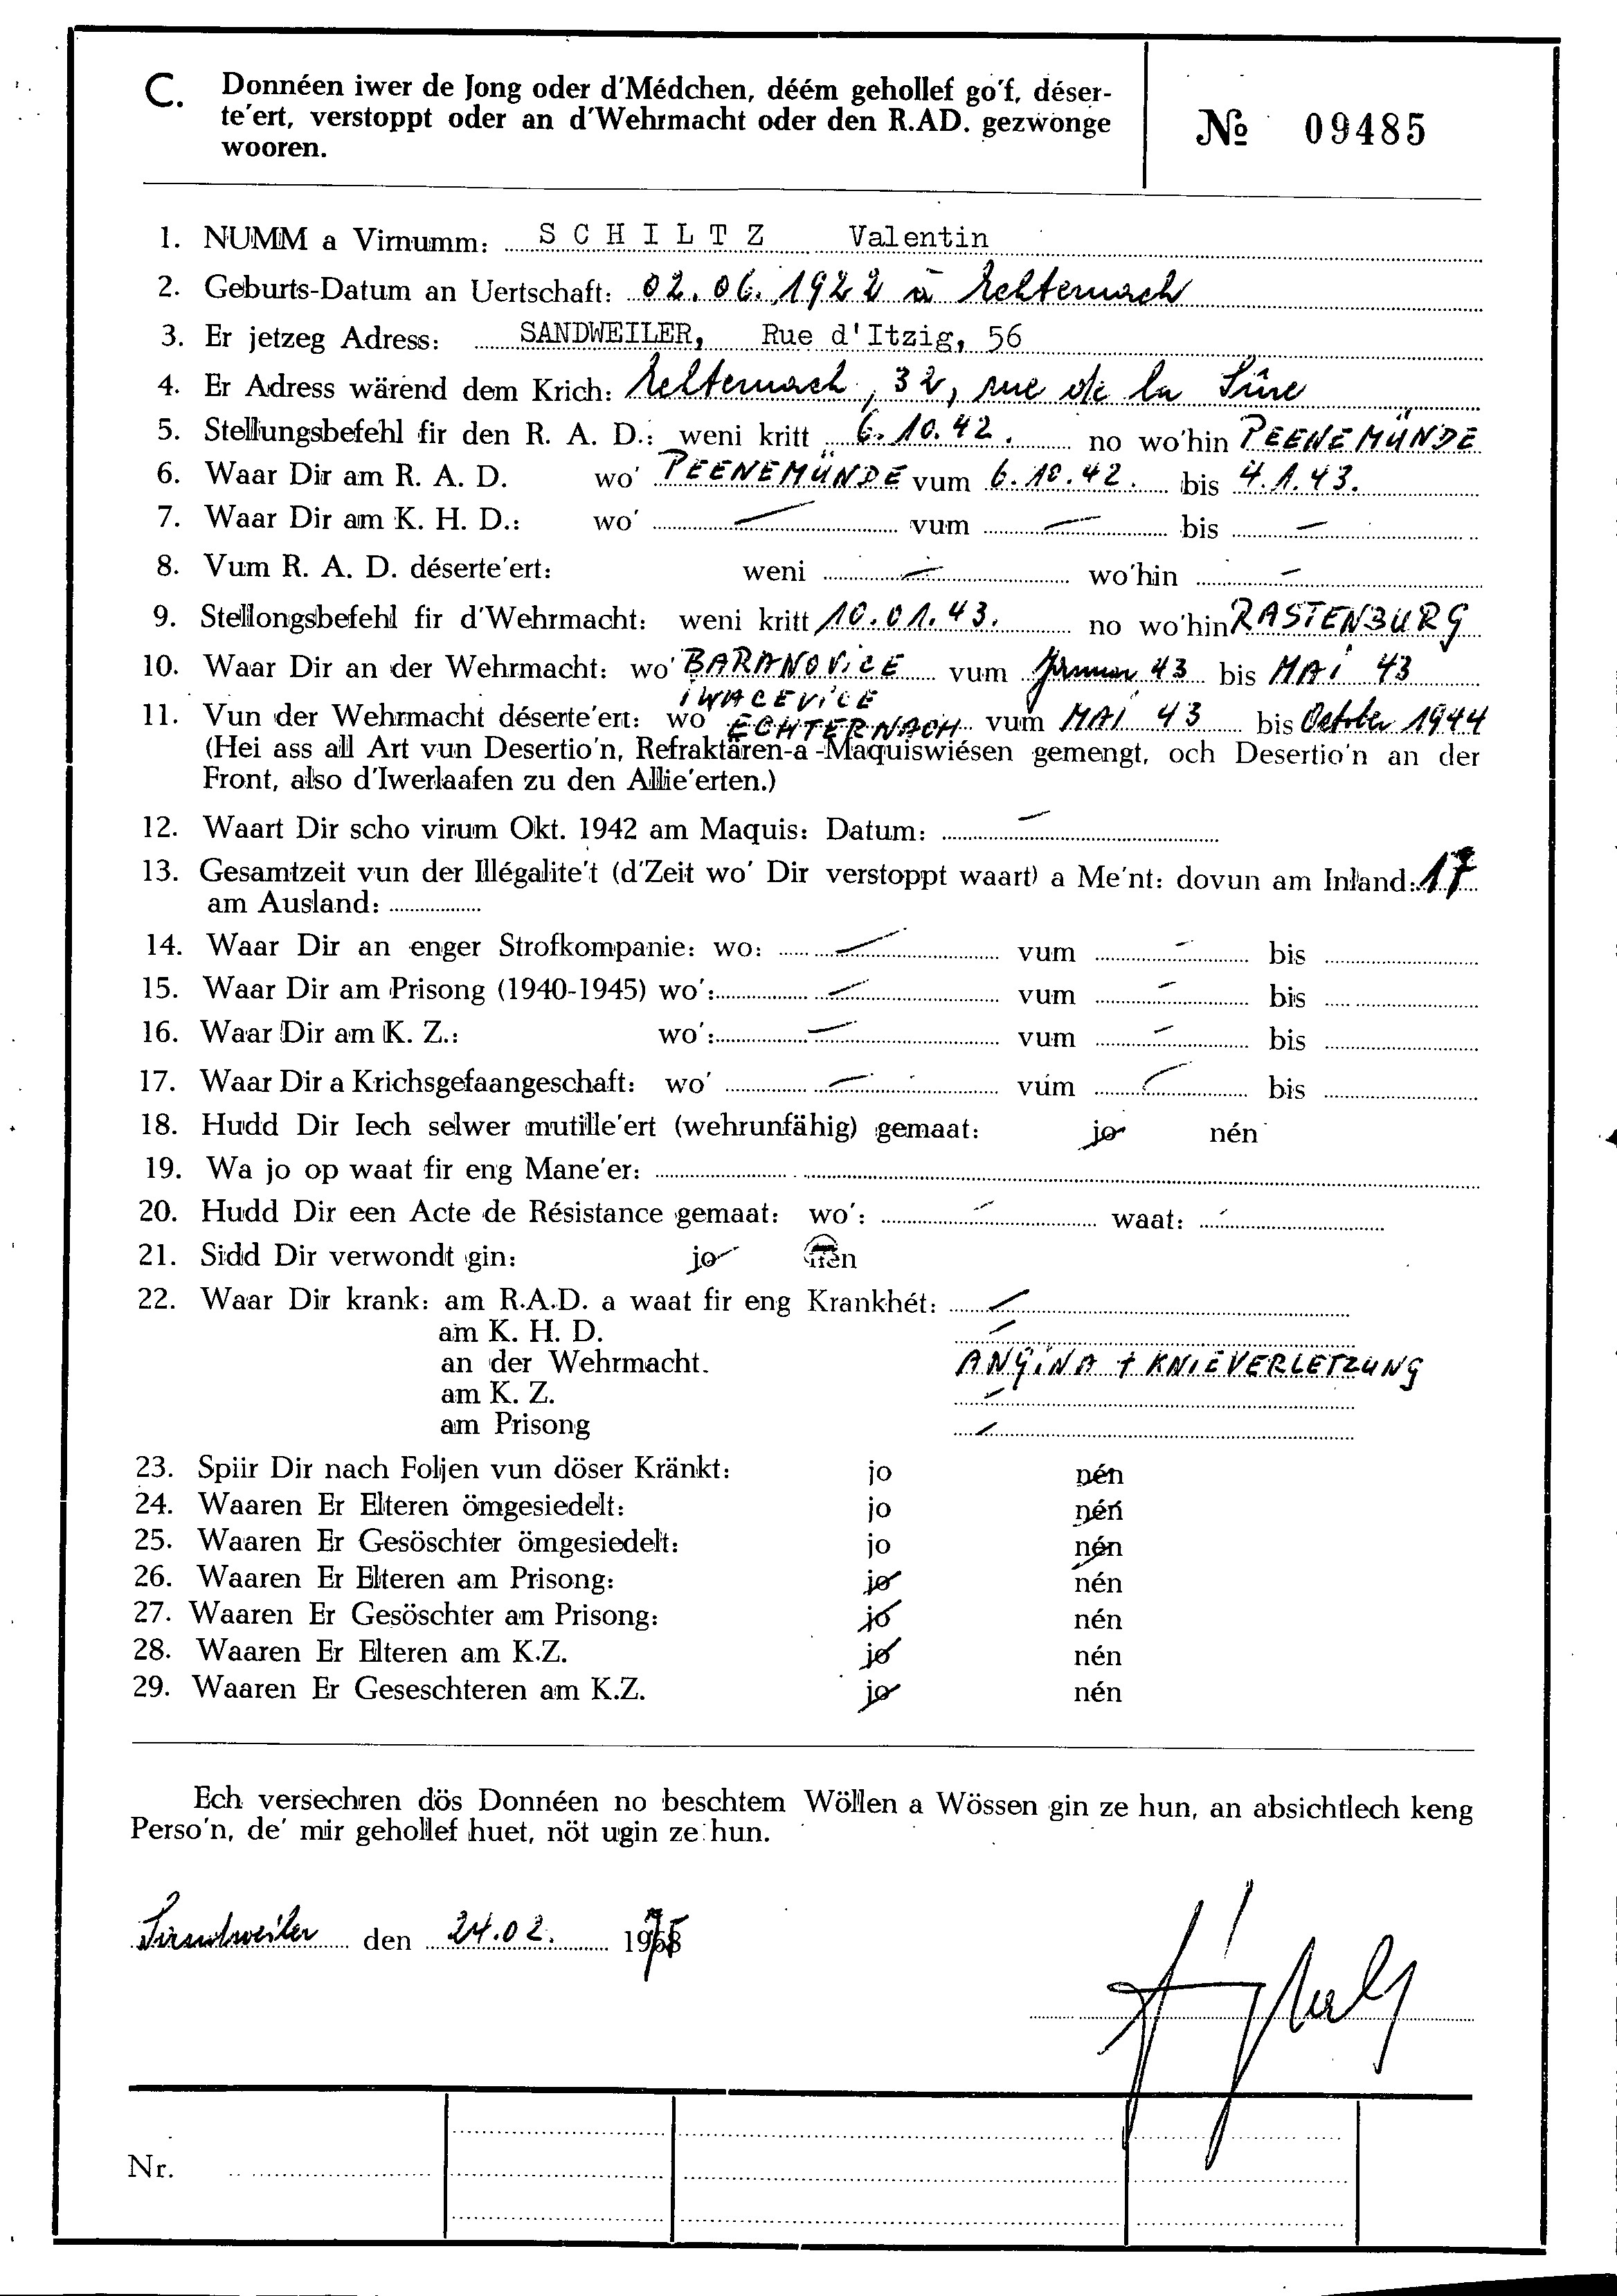 C. Donnéen iwer de Jong oder d'Médchen, déém gehollef go'f, déser-
te'ert, verstoppt oder an d'Wehrmacht oder den R.AD. gezwonge
wooren.
№ 09485
1. NUMM a Virnumm: SCHILTZ Valentin
2. Geburts-Datum an Uertschaft: 02.06.1922 à Echternach
3. Er jetzeg Adress: SANDWEILER, Rue d'Itzig, 56
4. Er Adress wärend dem Krich: Echternach, 32, rue de la Sûre
5. Stellungsbefehl fir den R. A. D.: weni kritt 6.10.42. no wo'hin PEENEMÜNDE
6. Waar Dir am R. A. D. wo' PEENEMÜNDE vum 6.10.42. bis 4.1.43.
7. Waar Dir am K. H. D.: wo' — vum — bis —
8. Vum R. A. D. déserte'ert: weni — wo'hin —
9. Stellongsbefehl fir d'Wehrmacht: weni kritt 10.01.43. no wo'hin RASTENBURG
10. Waar Dir an der Wehrmacht: wo' BARANOVICE vum Januar 43 bis MAI 43
IWACEVICE
11. Vun der Wehrmacht déserte'ert: wo ECHTERNACH vum MAI 43 bis October 1944
(Hei ass all Art vun Desertio'n, Refraktären-a-Maquiswiésen gemengt, och Desertio'n an der
Front, also d'Iwerlaafen zu den Allie'erten.)
12. Waart Dir scho virum Okt. 1942 am Maquis: Datum: —
13. Gesamtzeit vun der Illégalite't (d'Zeit wo' Dir verstoppt waart) a Me'nt: dovun am Inland: 17
am Ausland:
14. Waar Dir an enger Strofkompanie: wo: — vum — bis
15. Waar Dir am Prisong (1940-1945) wo': — vum — bis
16. Waar Dir am K. Z.: wo': — vum — bis
17. Waar Dir a Krichsgefaangeschaft: wo' — vum — bis
18. Hudd Dir Iech selwer mutille'ert (wehrunfähig) gemaat: jo nén
19. Wa jo op waat fir eng Mane'er:
20. Hudd Dir een Acte de Résistance gemaat: wo': — waat: —
21. Sidd Dir verwondt gin: jo nén
22. Waar Dir krank: am R.A.D. a waat fir eng Krankhét: —
am K. H. D. —
an der Wehrmacht. ANGINA + KNIEVERLETZUNG
am K. Z. —
am Prisong —
23. Spiir Dir nach Foljen vun döser Kränkt: jo nén
24. Waaren Er Elteren ömgesiedelt: jo nén
25. Waaren Er Gesöschter ömgesiedelt: jo nén
26. Waaren Er Elteren am Prisong: jo nén
27. Waaren Er Gesöschter am Prisong: jo nén
28. Waaren Er Elteren am K.Z. jo nén
29. Waaren Er Geseschteren am K.Z. jo nén
Ech versechren dös Donnéen no beschtem Wöllen a Wössen gin ze hun, an absichtlech keng
Perso'n, de' mir gehollef huet, nöt ugin ze hun.
Sandweiler den 24.02. 1975
Nr.